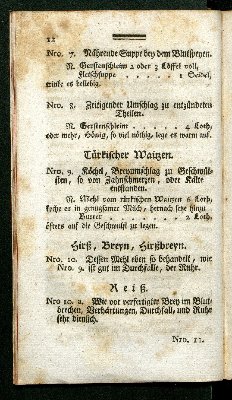 12
Nro. 7. Nährende Suppe bey dem Blutspeyen.
℞. Gerstenschleim 2 oder 3 Löffel voll,
Fleischsuppe . . . . . 1 Seidel,
trinke es beliebig.
Nro. 8. Zeitigender Umschlag zu entzündeten
Theilen.
℞. Gerstenschleim . . . . 4 Loth,
oder mehr, Hönig, so viel nöthig, lege es warm auf.
Türkischer Waitzen.
Nro. 9. Köchl, Breyumschlag zu Geschwul-
sten, so von Zahnschmerzen, oder Kälte
entstanden.
℞. Mehl vom türkischen Waitzen 6 Loth,
koche es in genugsamer Milch, hernach setze hinzu
Butter . . . . . 2 Loth,
öfters auf die Geschwulst zu legen.
Hirß, Breyn, Hirßbreyn.
Nro. 10. Dessen Mehl eben so behandelt, wie
Nro. 9. ist gut im Durchfalle, der Ruhr.
Reiß.
Nro. 10. a. Wie vor verfertigter Brey im Blut-
brechen, Verhärtungen, Durchfall, und Ruhr
sehr dienlich.
Nro. 11.